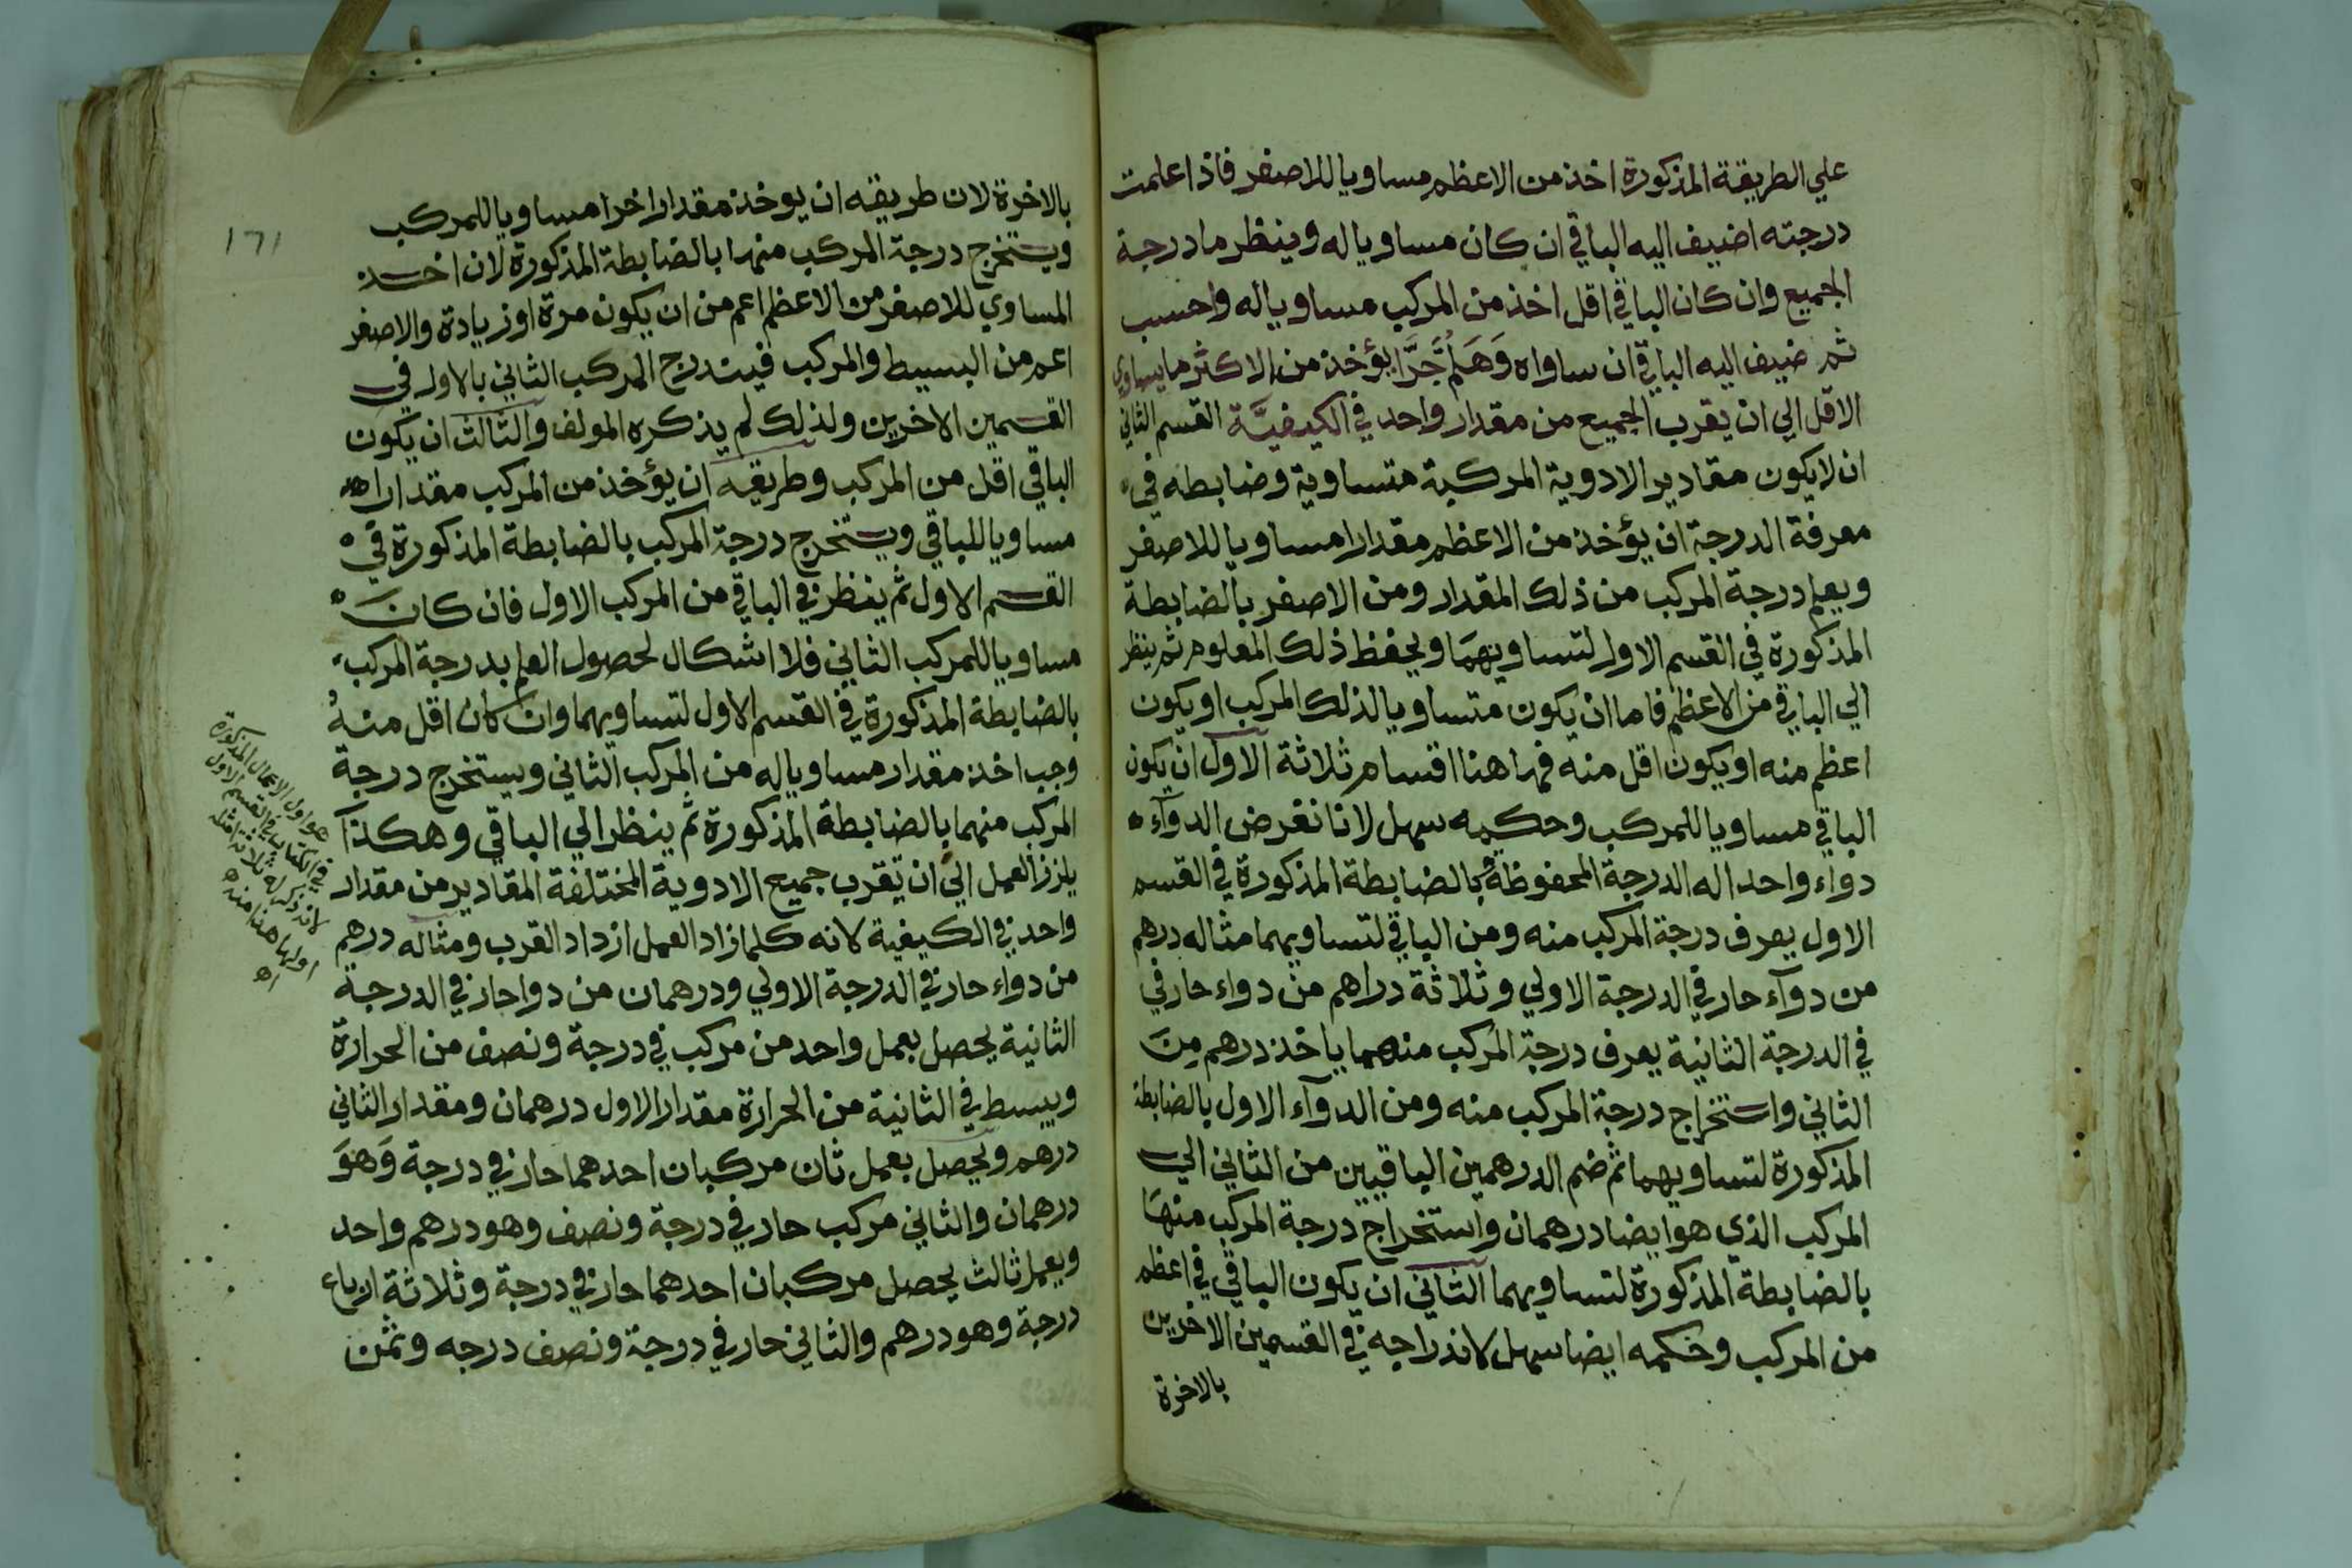 علي الطريقة المذكورة اخذ من الاعظم مساويا للاصغر فاذا علمت
درجته اضيف اليه الباقي ان كان مساويا له وينظر ما درجة
الجميع وان كان الباقي اقل اخذ من المركب مساويا له واحسب
ثم ضيف اليه الباقي ان ساواه وَهَلُمَّ جَرَّا يؤخذ من الاكثر ما يساوي
الاقل الي ان يقرب الجميع من مقدار واحد في الكيفيَّة القسم الثاني
ان لا يكون مقادير الادوية المركبة متساوية وضابطه في
معرفة الدرجة ان يؤخذ من الاعظم مقدارا مساويا للاصغر
ويعلم درجة المركب من ذلك المقدار ومن الاصغر بالضابطة
المذكورة في القسم الاول لتساويهما ويحفظ ذلك المعلوم ثم ينظر
الي الباقي من الاعظم فاما ان يكون متساويا لذلك المركب او يكون
اعظم منه او يكون اقل منه فها هنا اقسام ثلاثة الاول ان يكون
الباقي مساويا للمركب وحكمه سهل لانا نفرض الدوآء
دواء واحدا له الدرجة المحفوظة بالضابطة المذكورة في القسم
الاول يعرف درجة المركب منه ومن الباقي لتساويهما مثاله درهم
من دوآء حار في الدرجة الاولي وثلاثة دراهم من دواء حار في
في الدرجة الثانية يعرف درجة المركب منهما ياخذ درهم مِنَ
الثاني واستخراج درجة المركب منه ومن الدوآء الاول بالضابطة
المذكورة لتساويهما ثم ضم الدرهمين الباقيين من الثاني الي
المركب الذي هو ايضا درهمان واستخراج درجة المركب منهَا
بالضابطة المذكورة لتساويهما الثاني ان يكون الباقي في اعظم
من المركب وحكمه ايضا سهل لاندراجه في القسمين الاخرين
بالاخرة
١٦١
بالاخرة لان طريقه ان يوخذ مقدارا اخرا مساويا للمركب
ويستخرج درجة المركب منها بالضابطة المذكورة لان اخذ
المساوي للاصغر من الاعظم اعم من ان يكون مرة او زيادة والاصغر
اعم من البسيط والمركب فيندرج المركب الثاني بالاول في
القسمين الاخرين ولذلك لم يذكره المولف والثالث ان يكون
الباقي اقل من المركب وطريقه ان يؤخذ من المركب مقدارا
مساويا للباقي ويستخرج درجة المركب بالضابطة المذكورة في
القسم الاول ثم ينظر في الباقي من المركب الاول فان كانَ
مساويا للمركب الثاني فلا اشكال لحصول العلم بدرجة المركب
بالضابطة المذكورة في القسم الاول لتساويهما وان كان اقل منهُ
وجب اخذ مقدار مساويا له من المركب الثاني ويستخرج درجة
المركب منهما بالضابطة المذكورة ثم ينظر الي الباقي وهكذآ
يلزز العمل الي ان تقرب جميع الادوية المختلفة المقادير من مقدار
واحد في الكيفية لانه كلما زاد العمل ازداد القرب ومثاله درهم
من دواء حار في الدرجة الاولي ودرهمان من دوا حار في الدرجة
الثانية يحصل بعمل واحد من مركب في درجة ونصف من الحرارة
وبسيط في الثانية من الحرارة مقدار الاول درهمان ومقدار الثاني
درهم ويحصل بعمل ثان مركبان احدهما حار في درجة وَهوَ
درهمان والثاني مركب حار في درجة ونصف وهو درهم واحد
ويعمل ثالث يحصل مركبان احدهما حار في درجة وثلاثة ارباع
درجة وهو درهم والثاني حار في درجة ونصف درجه وثمن
هو اول الاعمال المذكورة
في الكتاب في القسم الاول
لانه ذكر له ثلاثة امثلة
اولها هذا منه
اه